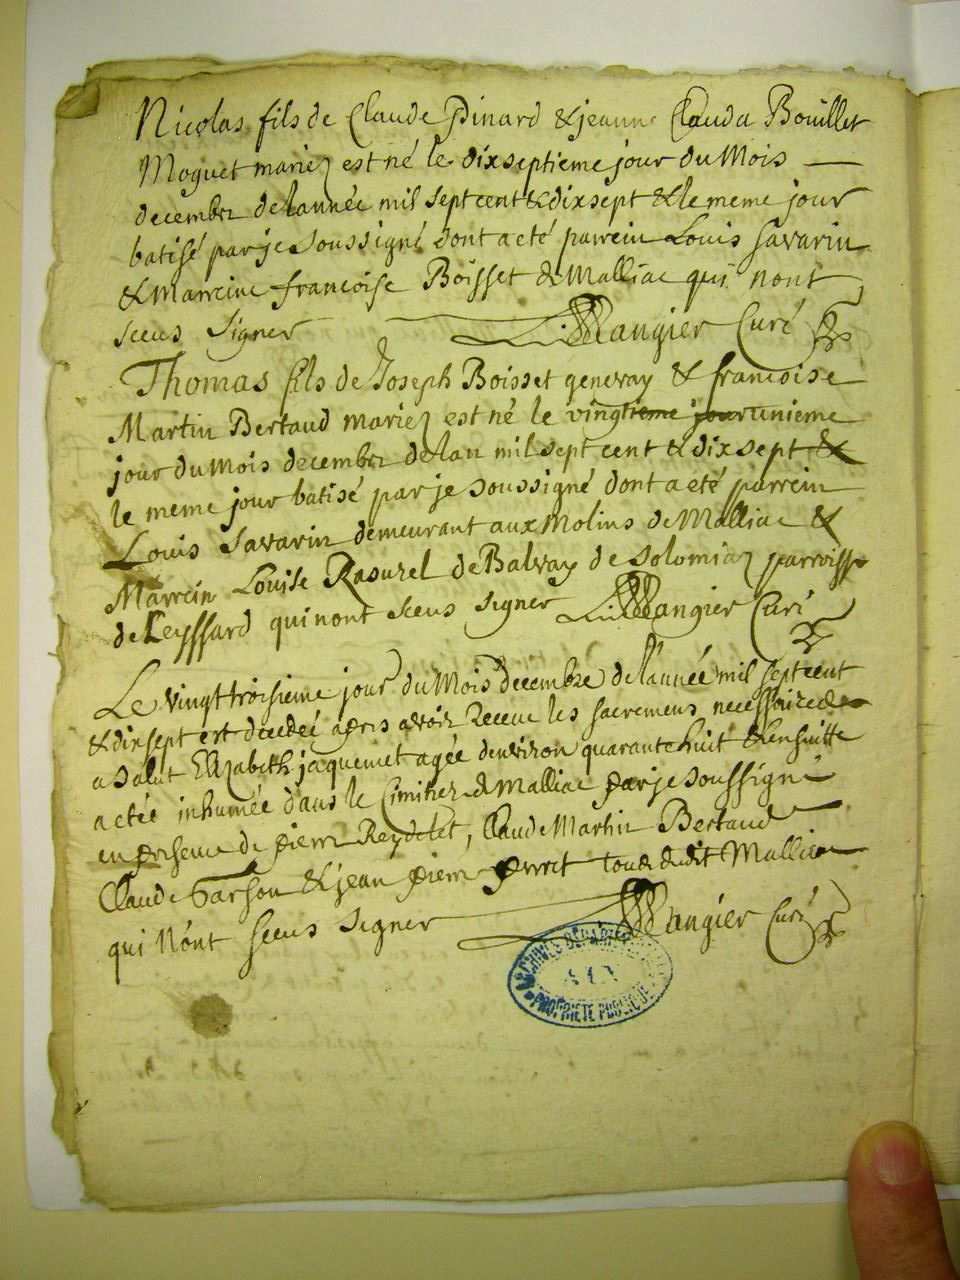 Nicolas fils de Claude Pinard & jeanne Clauda Bouillet
Moguet mariez est né le dixseptieme jour du Mois
decembre de lannée mil sept cent & dix sept & le meme jour
batisé par je soussigné dont a eté parrein Louis Savarin
& Marreine francoise Boisset de Malliac qui nont
sceus signer Mangier Curé
Thomas fils de Joseph Boisset genevay & francoise
Martin Bertaud mariez est né le vingtieme jour unieme
jour du Mois decembre de lan mil sept cent & dix sept &
le meme jour batisé par je soussigné dont a eté parrein
Louis Savarin demeurant aux Molins de Malliac &
Marrein Louise Rasurel de Balvay de Solomiaz parroisse
de Leyssard qui nont sceus signer Mangier Curé
Le vingt troisieme jour du Mois decembre de lannée mil sept cent
& dix sept est decedeé apres avoir Receue les sacremens necessaires
a salut Elizabeth jaquemet agée denviron quarante huit & ensuitte
a etée inhumée dans le Cimitiere de Malliac par je soussigné
en presence de pierre Reydelet, Claude Martin Bertaud
Claude & jean pierre perret tous dudit Malliac
qui Nont sceus signer Mangier Curé
ARCHIVES DEPARTEMENTALES
AIN
PROPRIETE PUBLIQUE